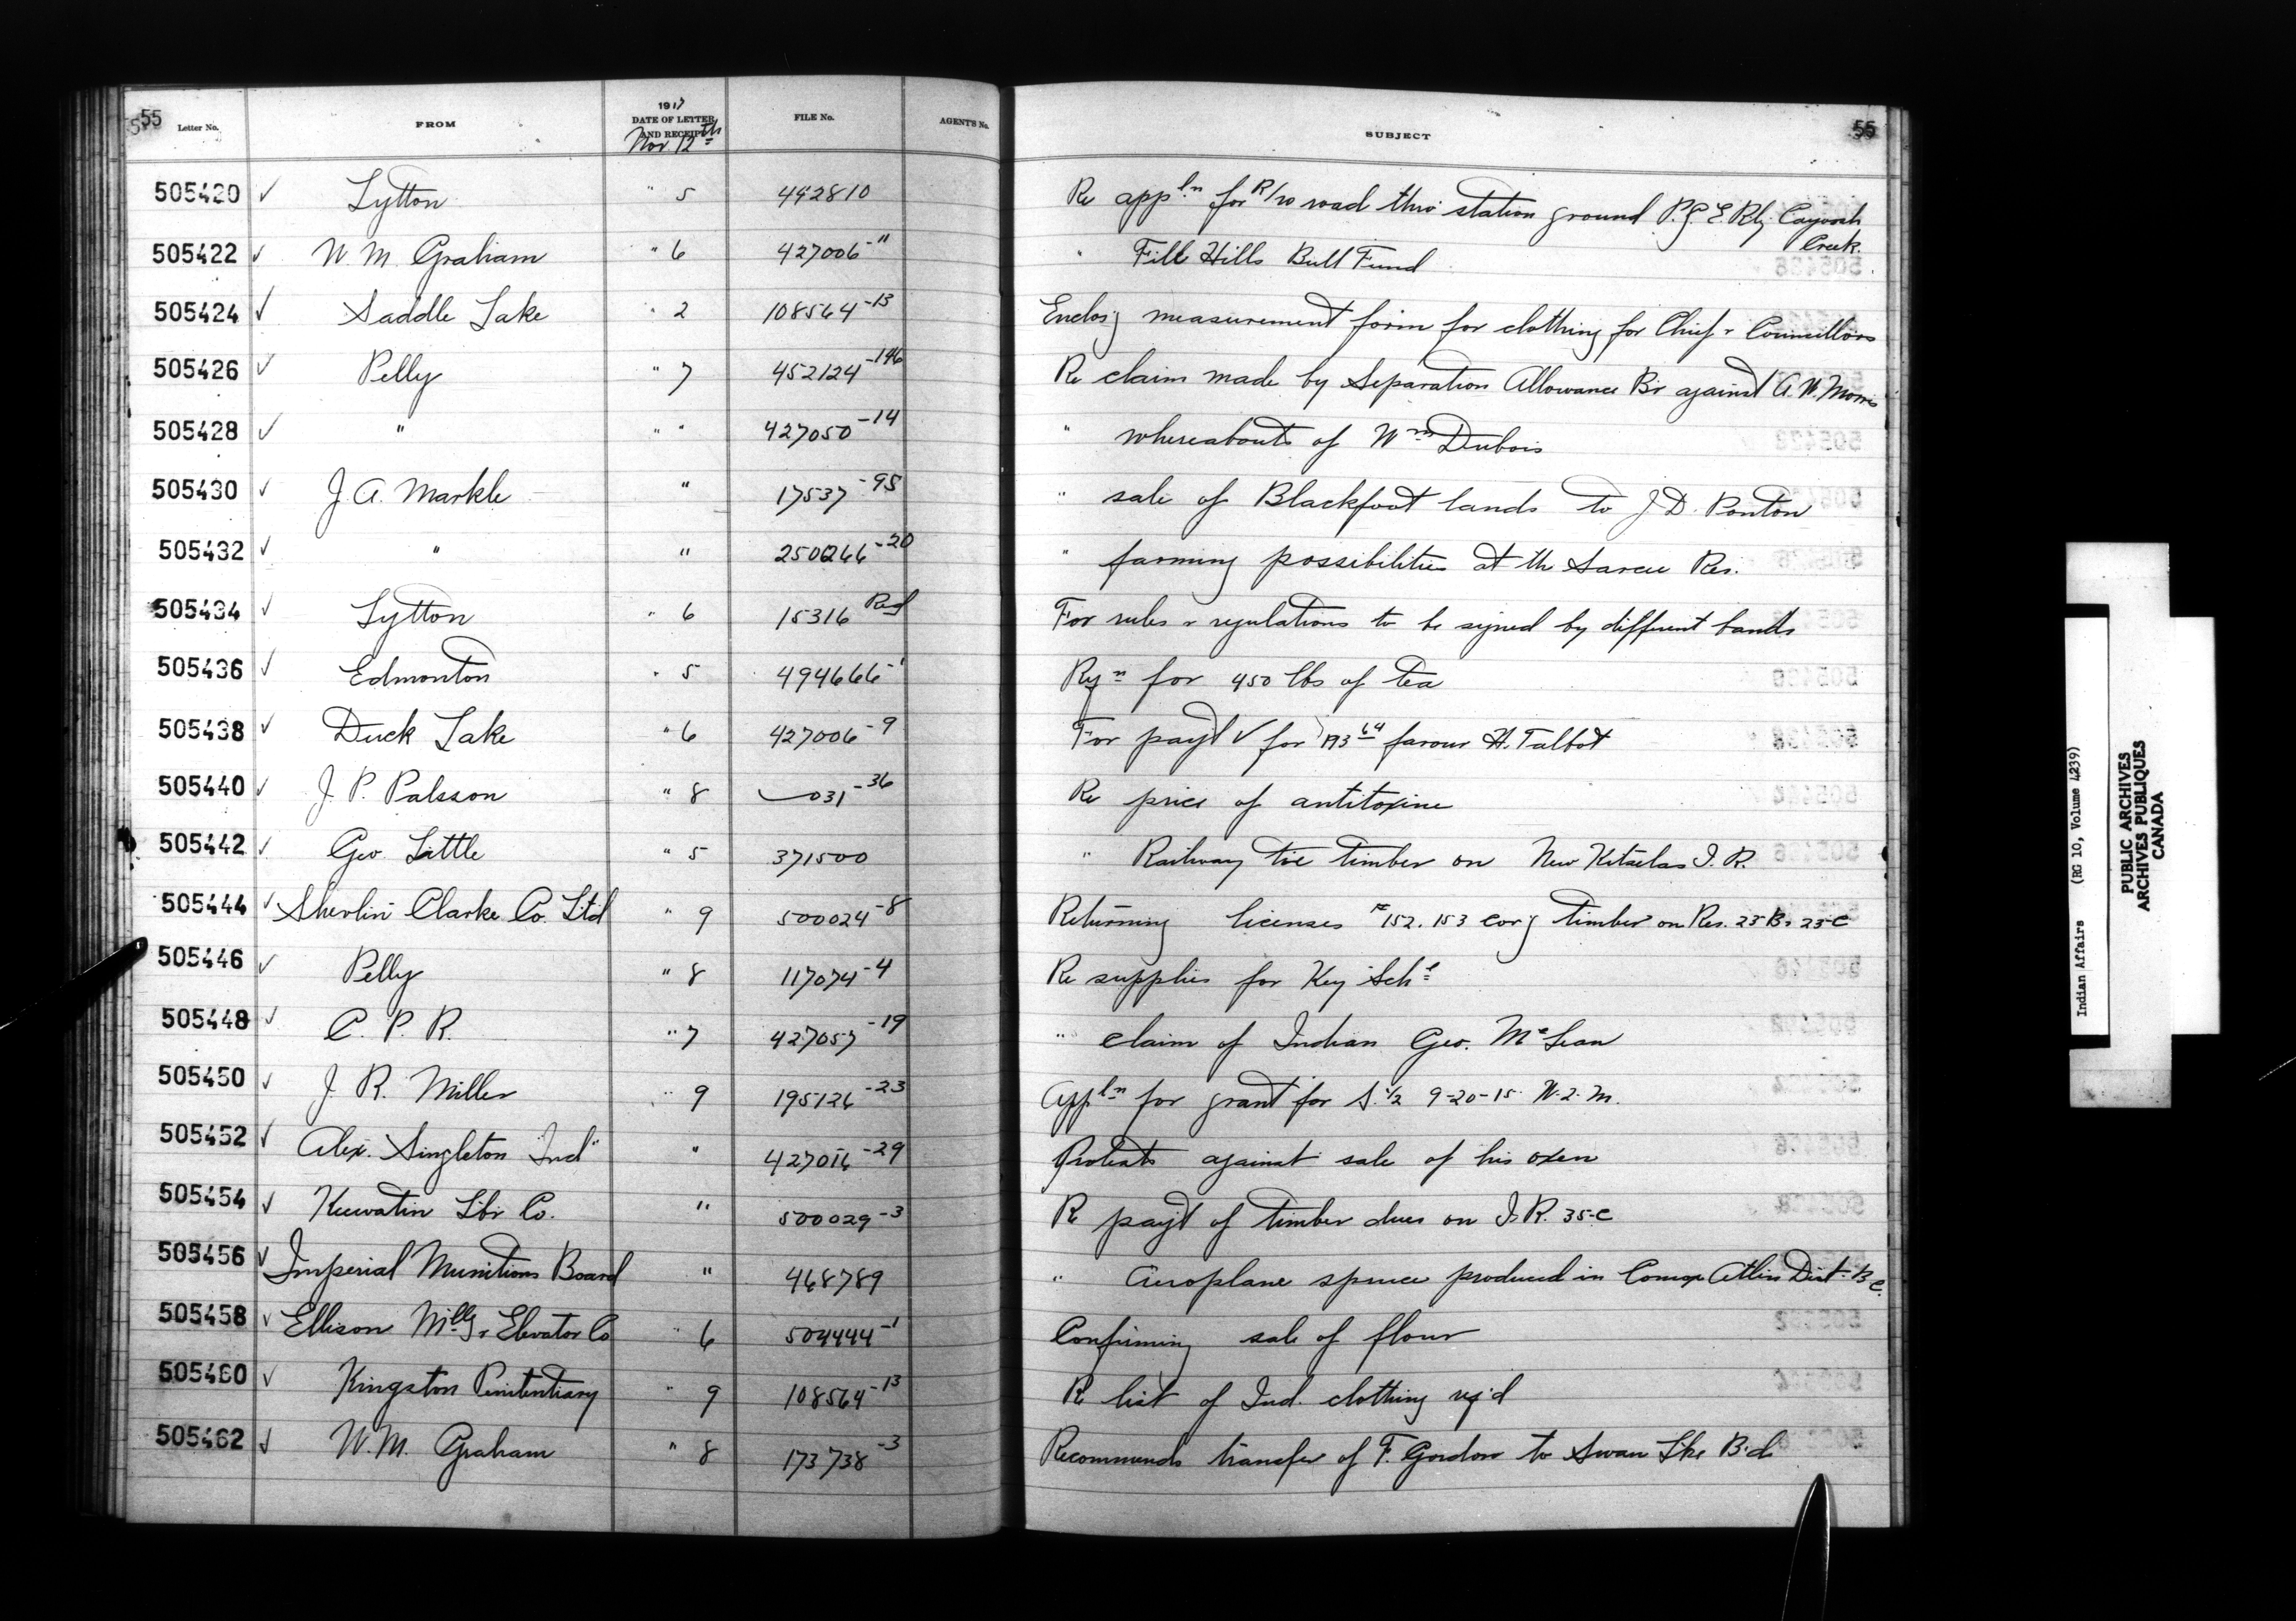 55 Letter No. FROM 1917 DATE OF LETTER AND RECEIPT Nov 12th FILE No. AGENT'S No. SUBJECT 55
505420 ✓ Lytton " 5 442810 Re appln for R/w road thro' station ground P.G.E. Rly. Cayoosh Creek.
505422 ✓ W. M. Graham " 6 427006-11 " File Hills Bull Fund
505424 ✓ Saddle Lake " 2 108564-13 Enclos'g measurement form for clothing for Chief & Councillors
505426 ✓ Pelly " 7 452124-146 Re claim made by Separation Allowance Br against A. W. Morris
505428 ✓ " " " 427050-14 " whereabouts of Wm Dubois
505430 ✓ J. A. Markle " 17537-95 " sale of Blackfoot lands to J. D. Ponton
505432 ✓ " " 250266-20 " farming possibilities at the Sarcee Res.
505434 ✓ Lytton " 6 15316 Red For rules & regulations to be signed by different bands
505436 ✓ Edmonton " 5 494666-1 Rqn for 450 lbs of tea
505438 ✓ Duck Lake " 6 427006-9 For payt ✓ for 193 64 favour H. Talbot
505440 ✓ J. P. Palsson " 8 031-36 Re price of antitoxine
505442 ✓ Geo. Little " 5 371500 " Railway tie timber on New Kitselas I. R.
505444 ✓ Shevlin Clarke Co. Ltd " 9 500024-8 Returning licenses # 152. 153 cov'g timber on Res. 25 B & 25 C
505446 ✓ Pelly " 8 117074-4 Re supplies for Key Schl
505448 ✓ C. P. R. " 7 427057-19 " claim of Indian Geo. McLean
505450 ✓ J. R. Miller " 9 195126-23 Appln for grant for S. 1/2 9-20-15 W. 2. M.
505452 ✓ Alex. Singleton "Ind" " 427016-29 Protests against sale of his oxen
505454 ✓ Keewatin Lbr Co. " 500029-3 Re payt of timber dues on I. R. 35-C
505456 ✓ Imperial Munitions Board " 468789 " Aeroplane spruce produced in Comox Atlin Dist. B C.
505458 ✓ Ellison Mill'g & Elevator Co " 6 504444-1 Confirming sale of flour
505460 ✓ Kingston Penitentiary " 9 108564-13 Re list of Ind. clothing req'd
505462 ✓ W. M. Graham " 8 173738-3 Recommends transfer of F. Gordon to Swan Lke B'd
Indian Affairs (RG 10, Volume 4239)
PUBLIC ARCHIVES
ARCHIVES PUBLIQUES
CANADA